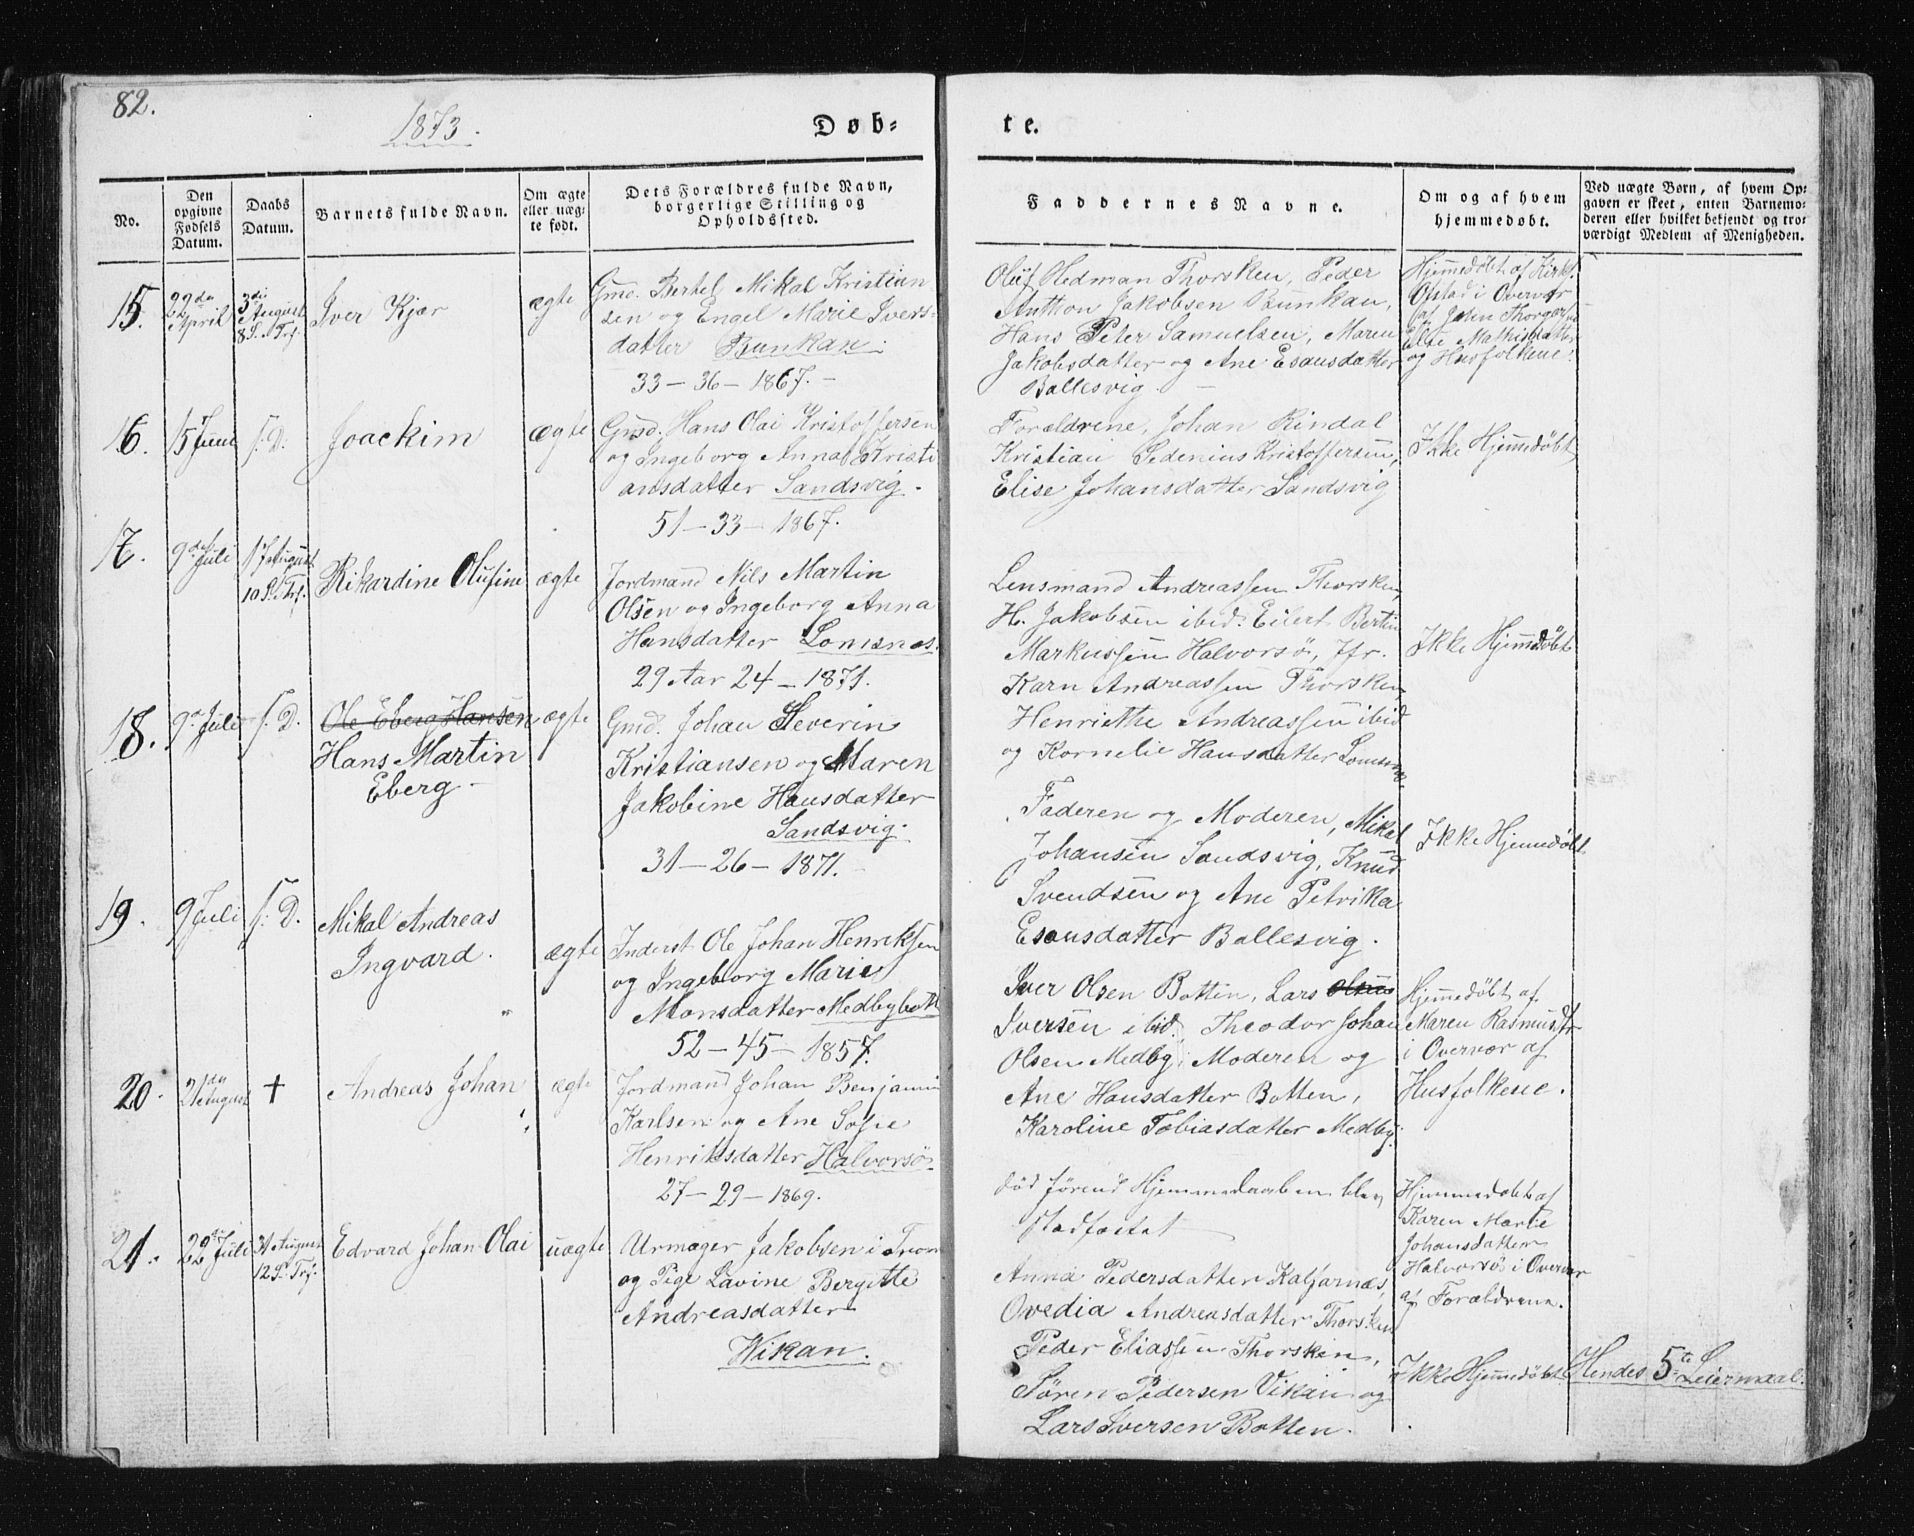 82.
1873.
Døb-
te.
No.
Den opgivne Fødsels Datum.
Daabs Datum.
Barnets fulde Navn.
Om ægte eller uæg- te født.
Dets Forældres fulde Navn, borgerlige Stilling og Opholdssted.
Faddernes Navne.
Om og af hvem hjemmedøbt.
Ved uægte Børn, af hvem Op-
gaven er skeet, enten Barnemo-
deren eller hvilket bekjendt og tro-
værdigt Medlem af Menigheden.
15.
22de April
3die August
8 S. e. Trf.
Iver Kjær
ægte
Gmd. Bertel Mikal Kristian
sen og Engel Marie Ivers-
datter Bunkan.
33 - 36 - 1867. -
Oluf Hedman Thorsken, Peder
Anthon Jakobsen Bunkan,
Hans Peter Samuelsen, Maren
Jakobsdatter og Ane Esausdatter
Ballesvig. -
Hjemmedøbt af Kirks.
Opstad i Overvær
af John
Mathisdatter
og Husfolkene.
16.
15 Juni
s. D.
Joachim
ægte
Gmd. Hans Olai Kristoffersen
og Ingeborg Anna Kristi
ansdatter Sandsvig.
51 - 33 - 1867.
Forældrene, Johan Rindal
Kristian Pedenius Kristoffersen,
Elise Johansdatter Sandsvig
Ikke Hjemmedøbt
17.
9de Juli
17 August
10 S. e. Trf.
Rikardine Olufine
ægte
Jordmand Nils Martin
Olsen og Ingeborg Anna
Hansdatter Lomsnes.
29 Aar 24 - 1871.
Lensmand Andreassen Thorsken,
H. Jakobsen ibid. Eilert Bertin
Markussen Halvorsö, Jfr.
Karn Andreassen Thorsken
Henriethe Andreassen ibid
og Kornelie Hansdatter Lomsnes
Ikke Hjemmedøbt
18.
9de Juli
s. D.
Ole Eberg Hansen
Hans Martin
Eberg -
ægte
Gmd. Johan Severin
Kristiansen og Maren
Jakobine Hansdatter
Sandsvig.
31 - 26 - 1871.
Faderen og Moderen, Mikal
Johansen Sandsvig, Knud
Svendsen og Ane Petrikka
Esausdatter Ballesvig.
Ikke Hjemmedøbt
19.
9 Juli
s. D.
Mikal Andreas
Ingvard.
ægte
Inderst Ole Johan Henriksen
og Ingeborg Marie
Monsdatter Medbybott
52 - 45 - 1857.
Iver Olsen Botten, Lars Olsen
Iversen ibid. Theodor Johan
Olsen Medby, Moderen og
Ane Hansdatter Botten,
Karoline Tobiasdatter Medby.
Hjemmedøbt af
Maren Rasmusdtr
i Overvær af
Husfolkene.
20.
21de August
†
Andreas Johan
ægte
Jordmand Johan Benjamin
Karlsen og Ane Sofie
Henriksdatter Halvorsö
27 - 29 - 1869.
død førend Hjemmedaaben blev
stadfæstet
Hjemmedøbt af
Karen Marie
Johansdatter
Halvorsö i Overvær
af Forældrene.
21.
22de Juli
31 August
12 S. e. Trf.
Edvard Johan Olai
uægte
Urmager Jakobsen i Trom
og Pige Lavine Bergitte
Andreasdatter
Wikan.
Anna Pedersdatter Kaljarnæs,
Ovedia Andreasdatter Thorsken
Peder Eliassen Thorsken,
Søren Pedersen Vikan og
Lars Iversen Botten.
Ikke Hjemmedøbt
Hendes 5te Leiermaal.